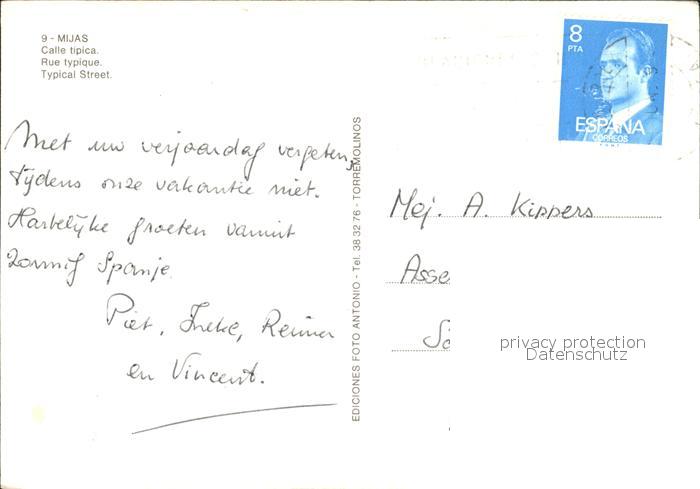 9 - MIJAS
Calle tipica.
Rue typique.
Typical Street.
Met uw verjaardag vergeten,
tijdens onze vakantie niet.
Hartelijke groeten vanuit
zonnig Spanje.
Piet, Ineke, Reinier
en Vincent.
EDICIONES FOTO ANTONIO - Tel. 38 32 76 - TORREMOLINOS
8
PTA
ESPAÑA
CORREOS
Mej. A. Kippers
Asse
privacy protection
Datenschutz